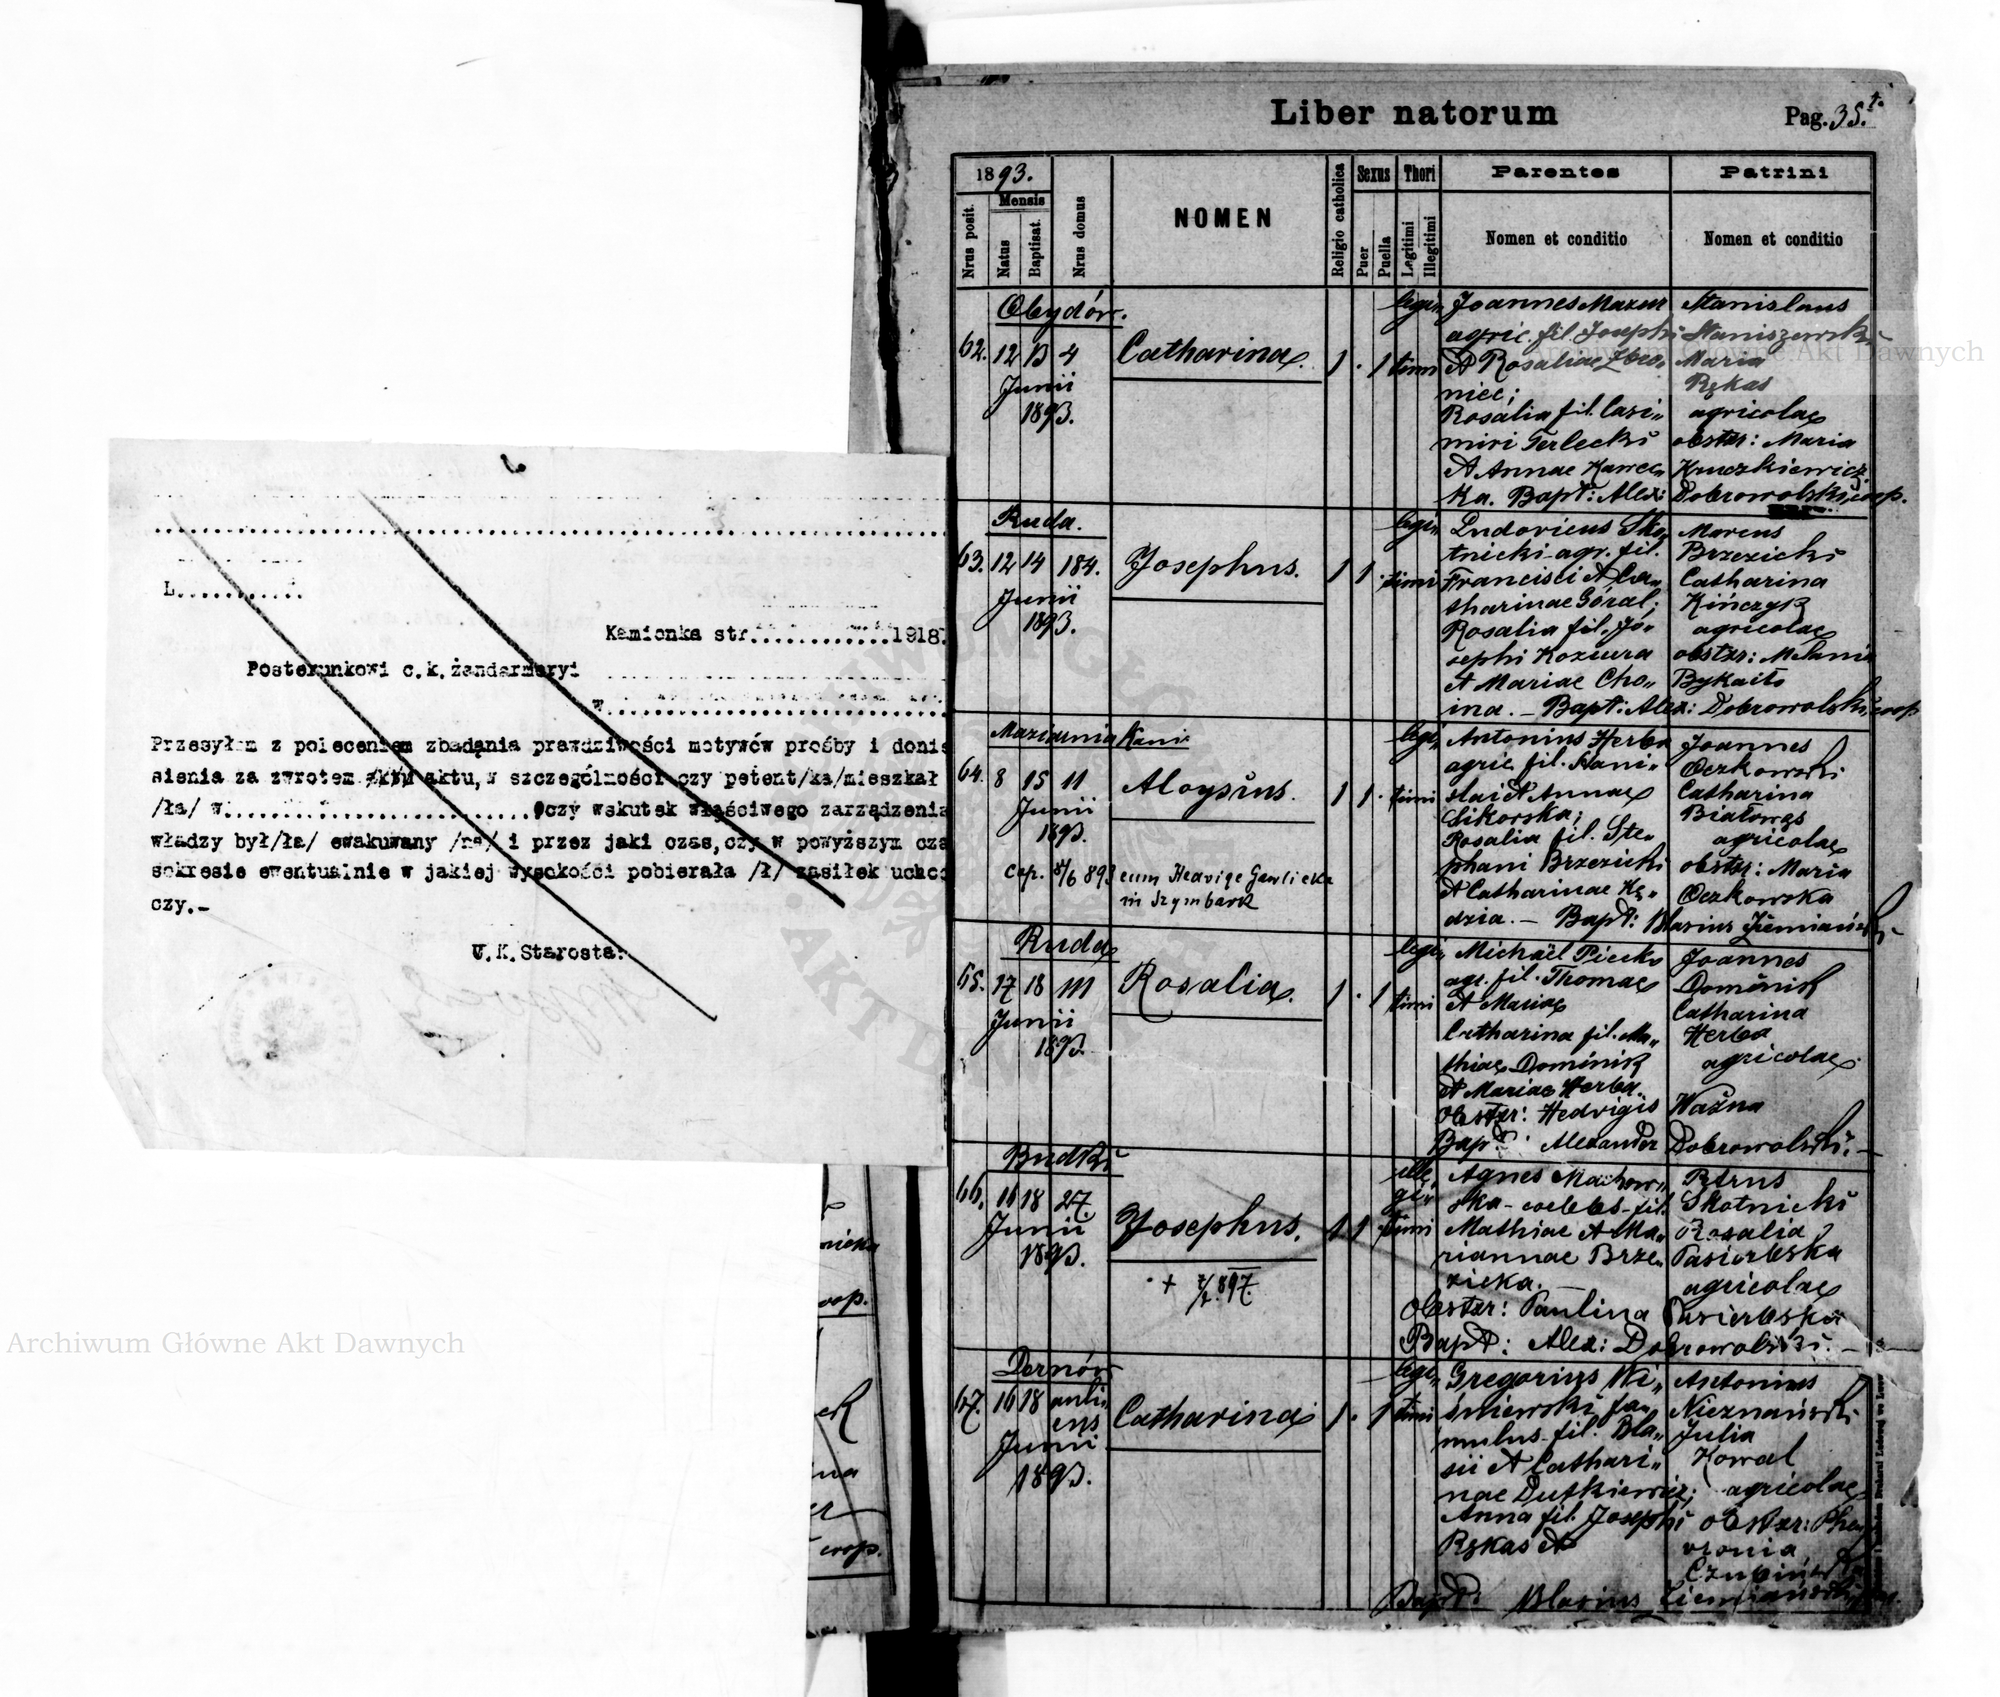 L............
Kamionka str..............1918.
Posterunkowi c.k.żandarmeryi
w
Przesyłam z poleceniem zbadania prawdziwości motywów prośby i donie
sienia za zwrotem aktu,w szczególności czy petent/ka/mieszkał
/ła/ w..............................czy wskutek właściwego zarządzenia
władzy był/ła/ ewakuwany /na/ i przez jaki czas,czy w powyższym cza
sokresie ewentualnie w jakiej wysokości pobierała /ł/ zasiłek uchod
czy.-
C.K.Starosta:
Archiwum Główne Akt Dawnych
Liber natorum
Pag. 35.
1893.
Nrus posit.
Mensis
Natus
Baptisat.
Nrus domus
NOMEN
Religio catholica
Sexus
Puer
Puella
Thori
Legitimi
Illegitimi
Parentes
Nomen et conditio
Patrini
Nomen et conditio
Obydów.
62. 12 13 4
Junii
1893.
Catharina.
1 . 1
legi„
timi
Joannes Mazur
agric. fil. Josephi
et Rosaliae
Rosalia fil. Casi„
miri Terlecki
et Annae Kawec„
ka. Bapt: Alex: Dobrowolski coop.
Stanislaus
Staniszewski
Maria
Rękas
agricolae
obstr: Maria
Kruczkiewicz
Ruda.
63. 12 14 184.
Junii
1893.
Josephus.
1 1 .
legi„
timi
Ludovicus Sko„
tnicki agr. fil.
Francisci et Ca„
tharinae Góral;
Rosalia fil. Jo„
sephi Koziura
et Mariae Cho„
ina. — Bapt: Alex: Dobrowolski coop
Marcus
Brzezicki
Catharina
Kińczyk
agricolae
obstr: Melania
Bykaito
Maziarnia Kami
64. 8 15 11
Junii
1893.
Aloysius.
1 1 .
legi„
timi
cum Hedvige Gawlicka
in Szymbark
Antonius Herba
agric fil. Stani„
slai et Annae
Sikorska;
Rosalia fil. Ste„
phani Brzezicki
et Catharinae Kę„
dzia. — Bapt: Blasius Ziemiański
Joannes
Oczkowski
Catharina
Białowąs
agricolae
obstr: Maria
Oczkowska
Ruda
65. 17 18 111
Junii
1893.
Rosalia.
1 . 1
legi„
timi
Michaël Piecko
agr. fil. Thomae
et Mariae
Catharina fil. Ma„
thiae Dominik
et Mariae Herba.
Obstr: Hedvigis Ważna
Bapt: Alexander Dobrowolski. —
Joannes
Dominik
Catharina
Herba
agricolae.
Budki
66. 16 18 27.
Junii
1893.
Josephus.
1 1 .
ille„
gi„
timi
Agnes Machow„
ska - coelebs - fil.
Mathiae et Ma„
riannae Brze„
zicka. —
Obstr: Paulina Pasierbska
Bapt: Alex: Dobrowolski. —
Petrus
Skotnicki
Rosalia
Pasierbska
agricolae
Dernów
67. 16 18
Junii
1893.
Catharina
1 . 1
legi„
timi
Gregorius Wi„
śniewski fa„
mulus fil. Bla„
sii et Cathari„
nae Dutkiewicz;
Anna fil. Josephi
Rękas et
Antonius
Nieznański
Julia
Kowal
agricolae
obstr:
Bapt: Blasius Ziemiański
Archiwum Główne Akt Dawnych